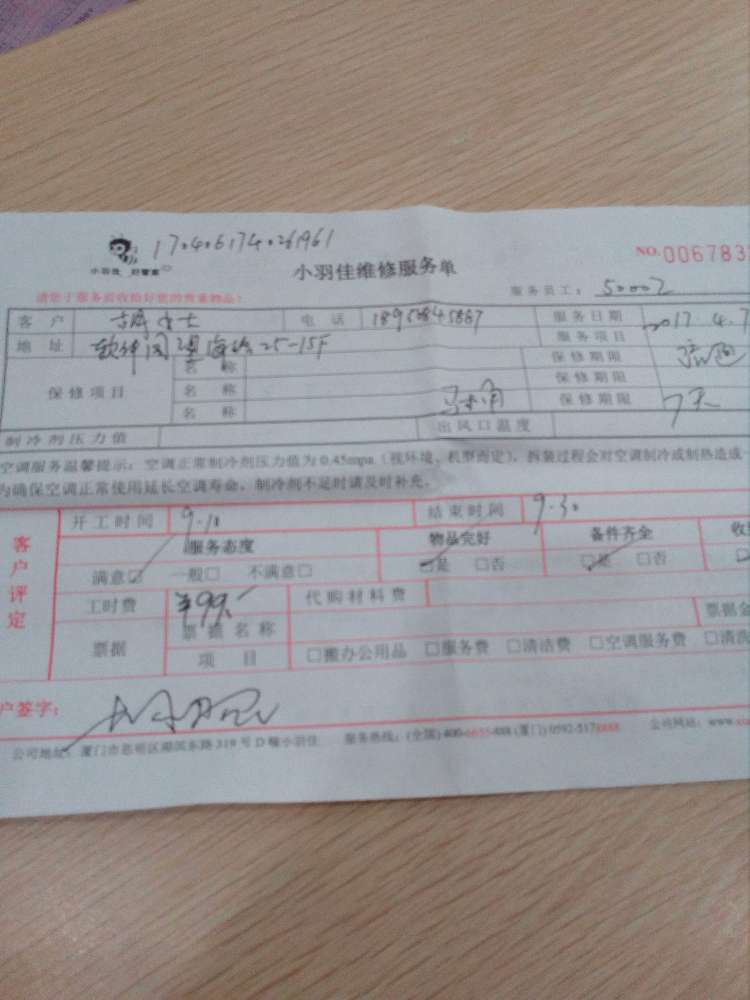 1704061740261961
小羽佳 好管家
小羽佳维修服务单
NO.0067832
请您于服务前收拾好您的贵重物品!
服务员工: 50002
客户 女士 电话 服务日期 2017.4.7
地址 软件园 25-15F 服务项目
保修项目 名称 保修期限
名称 保修期限
名称 马桶 保修期限 7天
制冷剂压力值 出风口温度
空调服务温馨提示:空调正常制冷剂压力值为0.45mpa(视环境、机型而定),拆装过程会对空调制冷或制热造成一
为确保空调正常使用延长空调寿命,制冷剂不足时请及时补充。
客户评定
开工时间 9.10 结束时间 9.30
服务态度 物品完好 备件齐全 收
满意☑ 一般□ 不满意□ ☑是 □否 ☑是 □否
工时费 ¥99. 代购材料费
票据 票据名称 票据金
项目 □搬办公用品 □服务费 □清洁费 □空调服务费 □清洗
户签字:
公司地址:厦门市思明区湖滨东路319号D幢小羽佳 服务热线:(全国)400-6655-888(厦门)0592-5178888 公司网站:www.